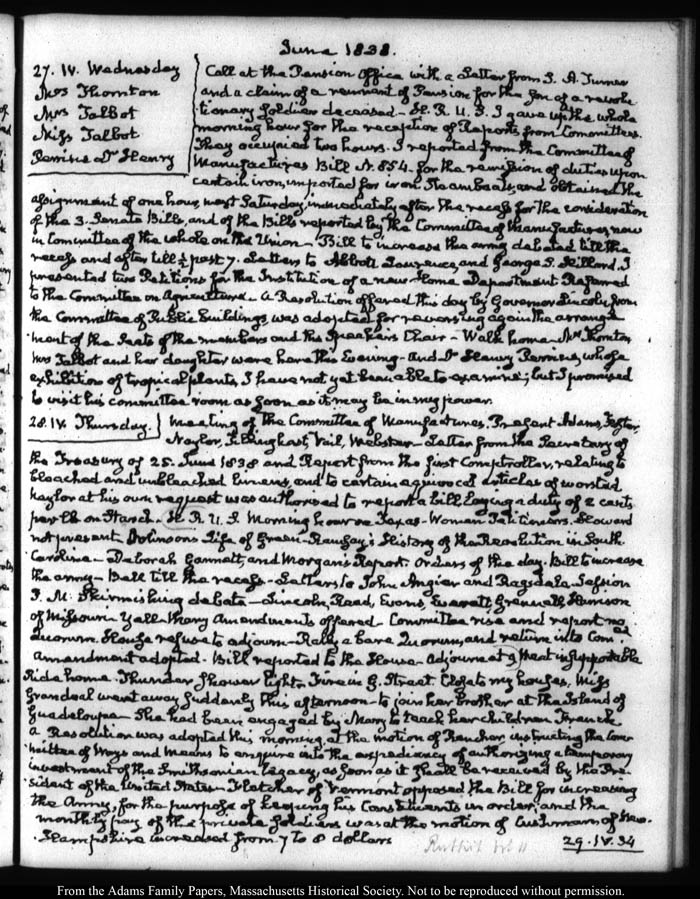 June 1838.
27. IV. Wednesday
Mrs Thornton
Mrs Talbot
Miss Talbot
Perrine Dr Henry
Call at the Pension Office with a Letter from S. A. Turner
and a claim of a remnant of Pension for the Son of a revolu-
tionary Soldier deceased — H. R. U. S. I gave up the whole
morning hour for the reception of Reports from Committees.
They occupied two hours. I reported from the Committee of
Manufactures Bill N. 854. for the remission of duties upon
certain iron, imported for iron Steamboats, and obtained the
assignment of one hour, next Saturday, immediately after the recess for the consideration
of the 3. Senate Bills, and of the Bills reported by the Committee of Manufactures, now
in Committee of the whole on the Union — Bill to increase the army debated till the
recess and after till ½ past 7. Letters to Abbott Lawrence, and George S. Hillard. I
presented two Petitions for the Institution of a new Home Department Referred
to the Committee on Agriculture. A Resolution offered this day by Governor Lincoln, from
the Committee of Public buildings, was adopted for reversing again the arrange-
ment of the Seats of the members and the Speaker's Chair — Walk home. Mrs Thornton
Mrs Talbot and her daughter were here this Evening — And Dr Henry Perrine, whose
exhibition of tropical plants, I have not yet been able to examine; but I promised
to visit his committee room as soon as it may be in my power.
28. IV. Thursday.
Meeting of the Committee of Manufactures. Present Adams, Foster,
Naylor, Tillinghast, Vail, Webster — Letter from the Secretary of
the Treasury of 25. June 1838 and Report from the first Comptroller, relating to
bleached and unbleached linens, and to certain equivocal articles of worsted
Naylor at his own request was authorised to report a bill laying a duty of 2 cents
per lb on Starch. H. R. U. S. Morning hour on Texas — Woman Petitioners. Howard
not present. Johnson's Life of Green — Ramsay's History of the Revolution in South
Carolina — Deborah Gannett, and Morgan's Report. Orders of the day. Bill to increase
the army — Bell till the recess — Letters to John Angier and Ragsdale Session
P. M. Skirmishing debate — Lincoln, Reed, Evans, Everett, Grennell, Harrison
of Missouri — Yell — Many Amendments offered — Committee rise and report no
Quorum. House refuse to adjourn — Rally a bare Quorum, and return into Comee
Amendment adopted. Bill reported to the House. Adjourn at 9 heat insupportable
Ride home. Thunder Shower light. Fire in G. Street. Close to my houses, Miss
Grandsal went away suddenly this afternoon — to join her brother at the Island of
Guadeloupe — She had been engaged by Mary to teach her children French
A Resolution was adopted this morning at the motion of Rencher instructing the Com-
mittee of Ways and Means to enquire into the expediency of authorizing a temporary
investment of the Smithsonian legacy, as soon as it shall be received by the Pre-
sident of the United States — Fletcher of Vermont opposed the Bill for increasing
the Army, for the purpose of keeping his Constituents in order; and the
monthly pay of the private Soldiers was at the motion of Cushman of New-
Hampshire increased from 7 to 8 dollars
29. IV. 34
From the Adams Family Papers, Massachusetts Historical Society. Not to be reproduced without permission.